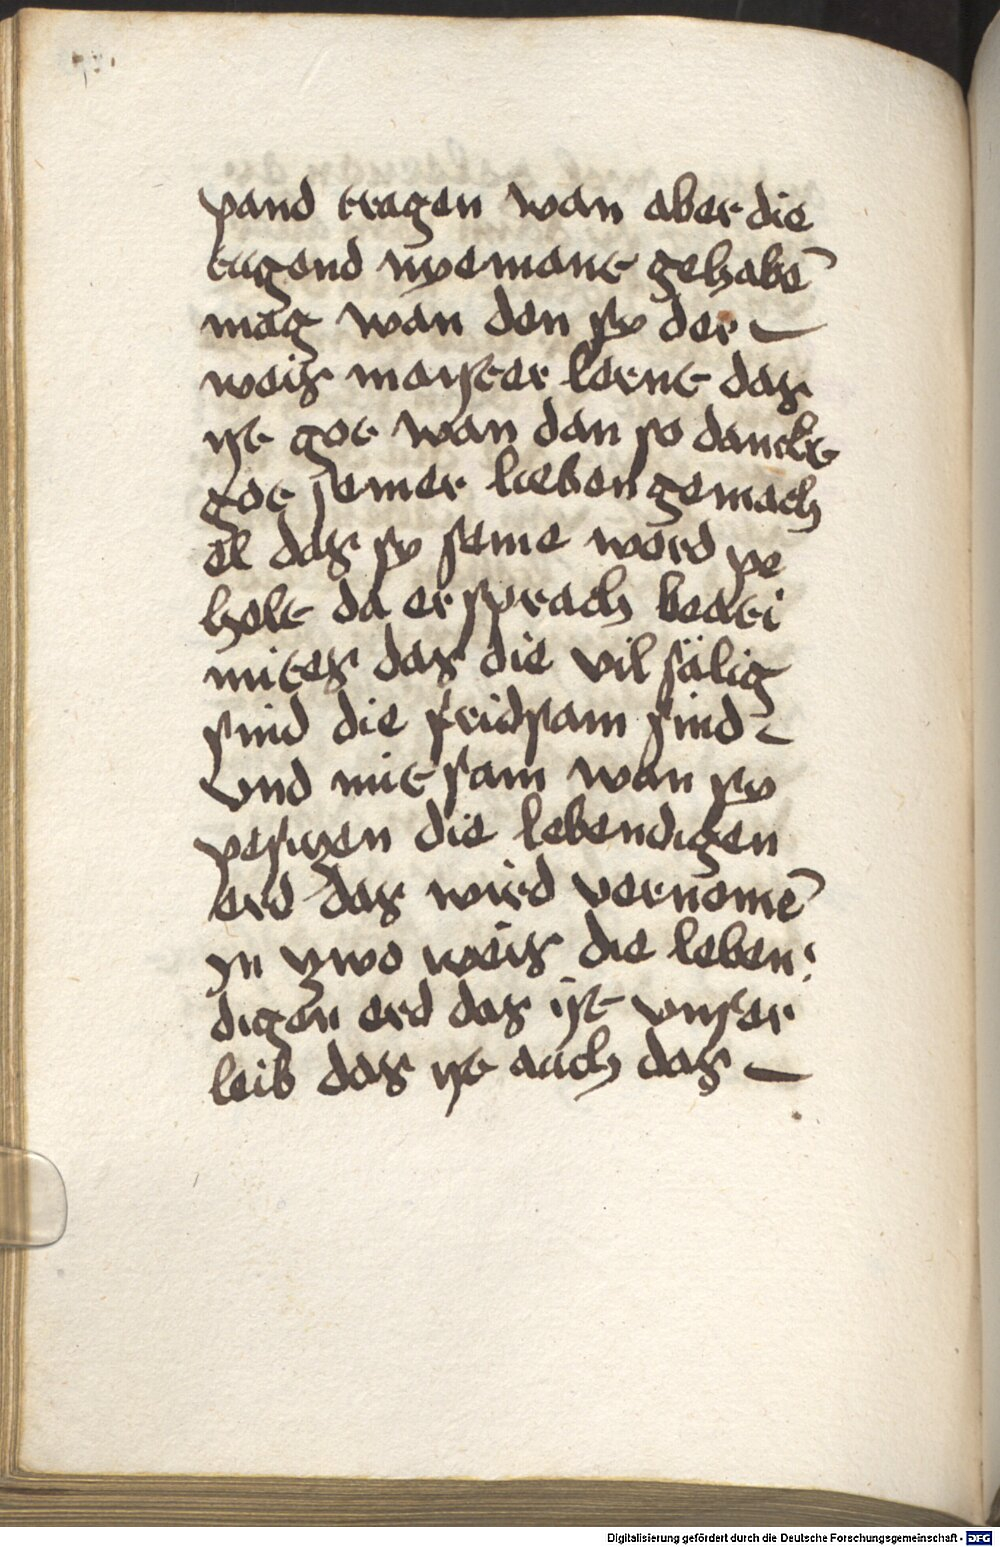 pand tragen wan aber die
tugend nyemant gehabē
mag wan den sy der
weis mayster lernt das
yst got wan dan so danckt
got seiner lieben gemach
el das sy seine word pe
holt da er sprach beati
mites das die vil sälig
sind die fridsam sind
vnd mitsam wan sy
pesiczen die lebendigen
erd das wird vernomē
yn zwo weis die leben
digen erd das ist vnser
leib das yst auch das
Digitalisierung gefördert durch die Deutsche Forschungsgemeinschaft - DFG